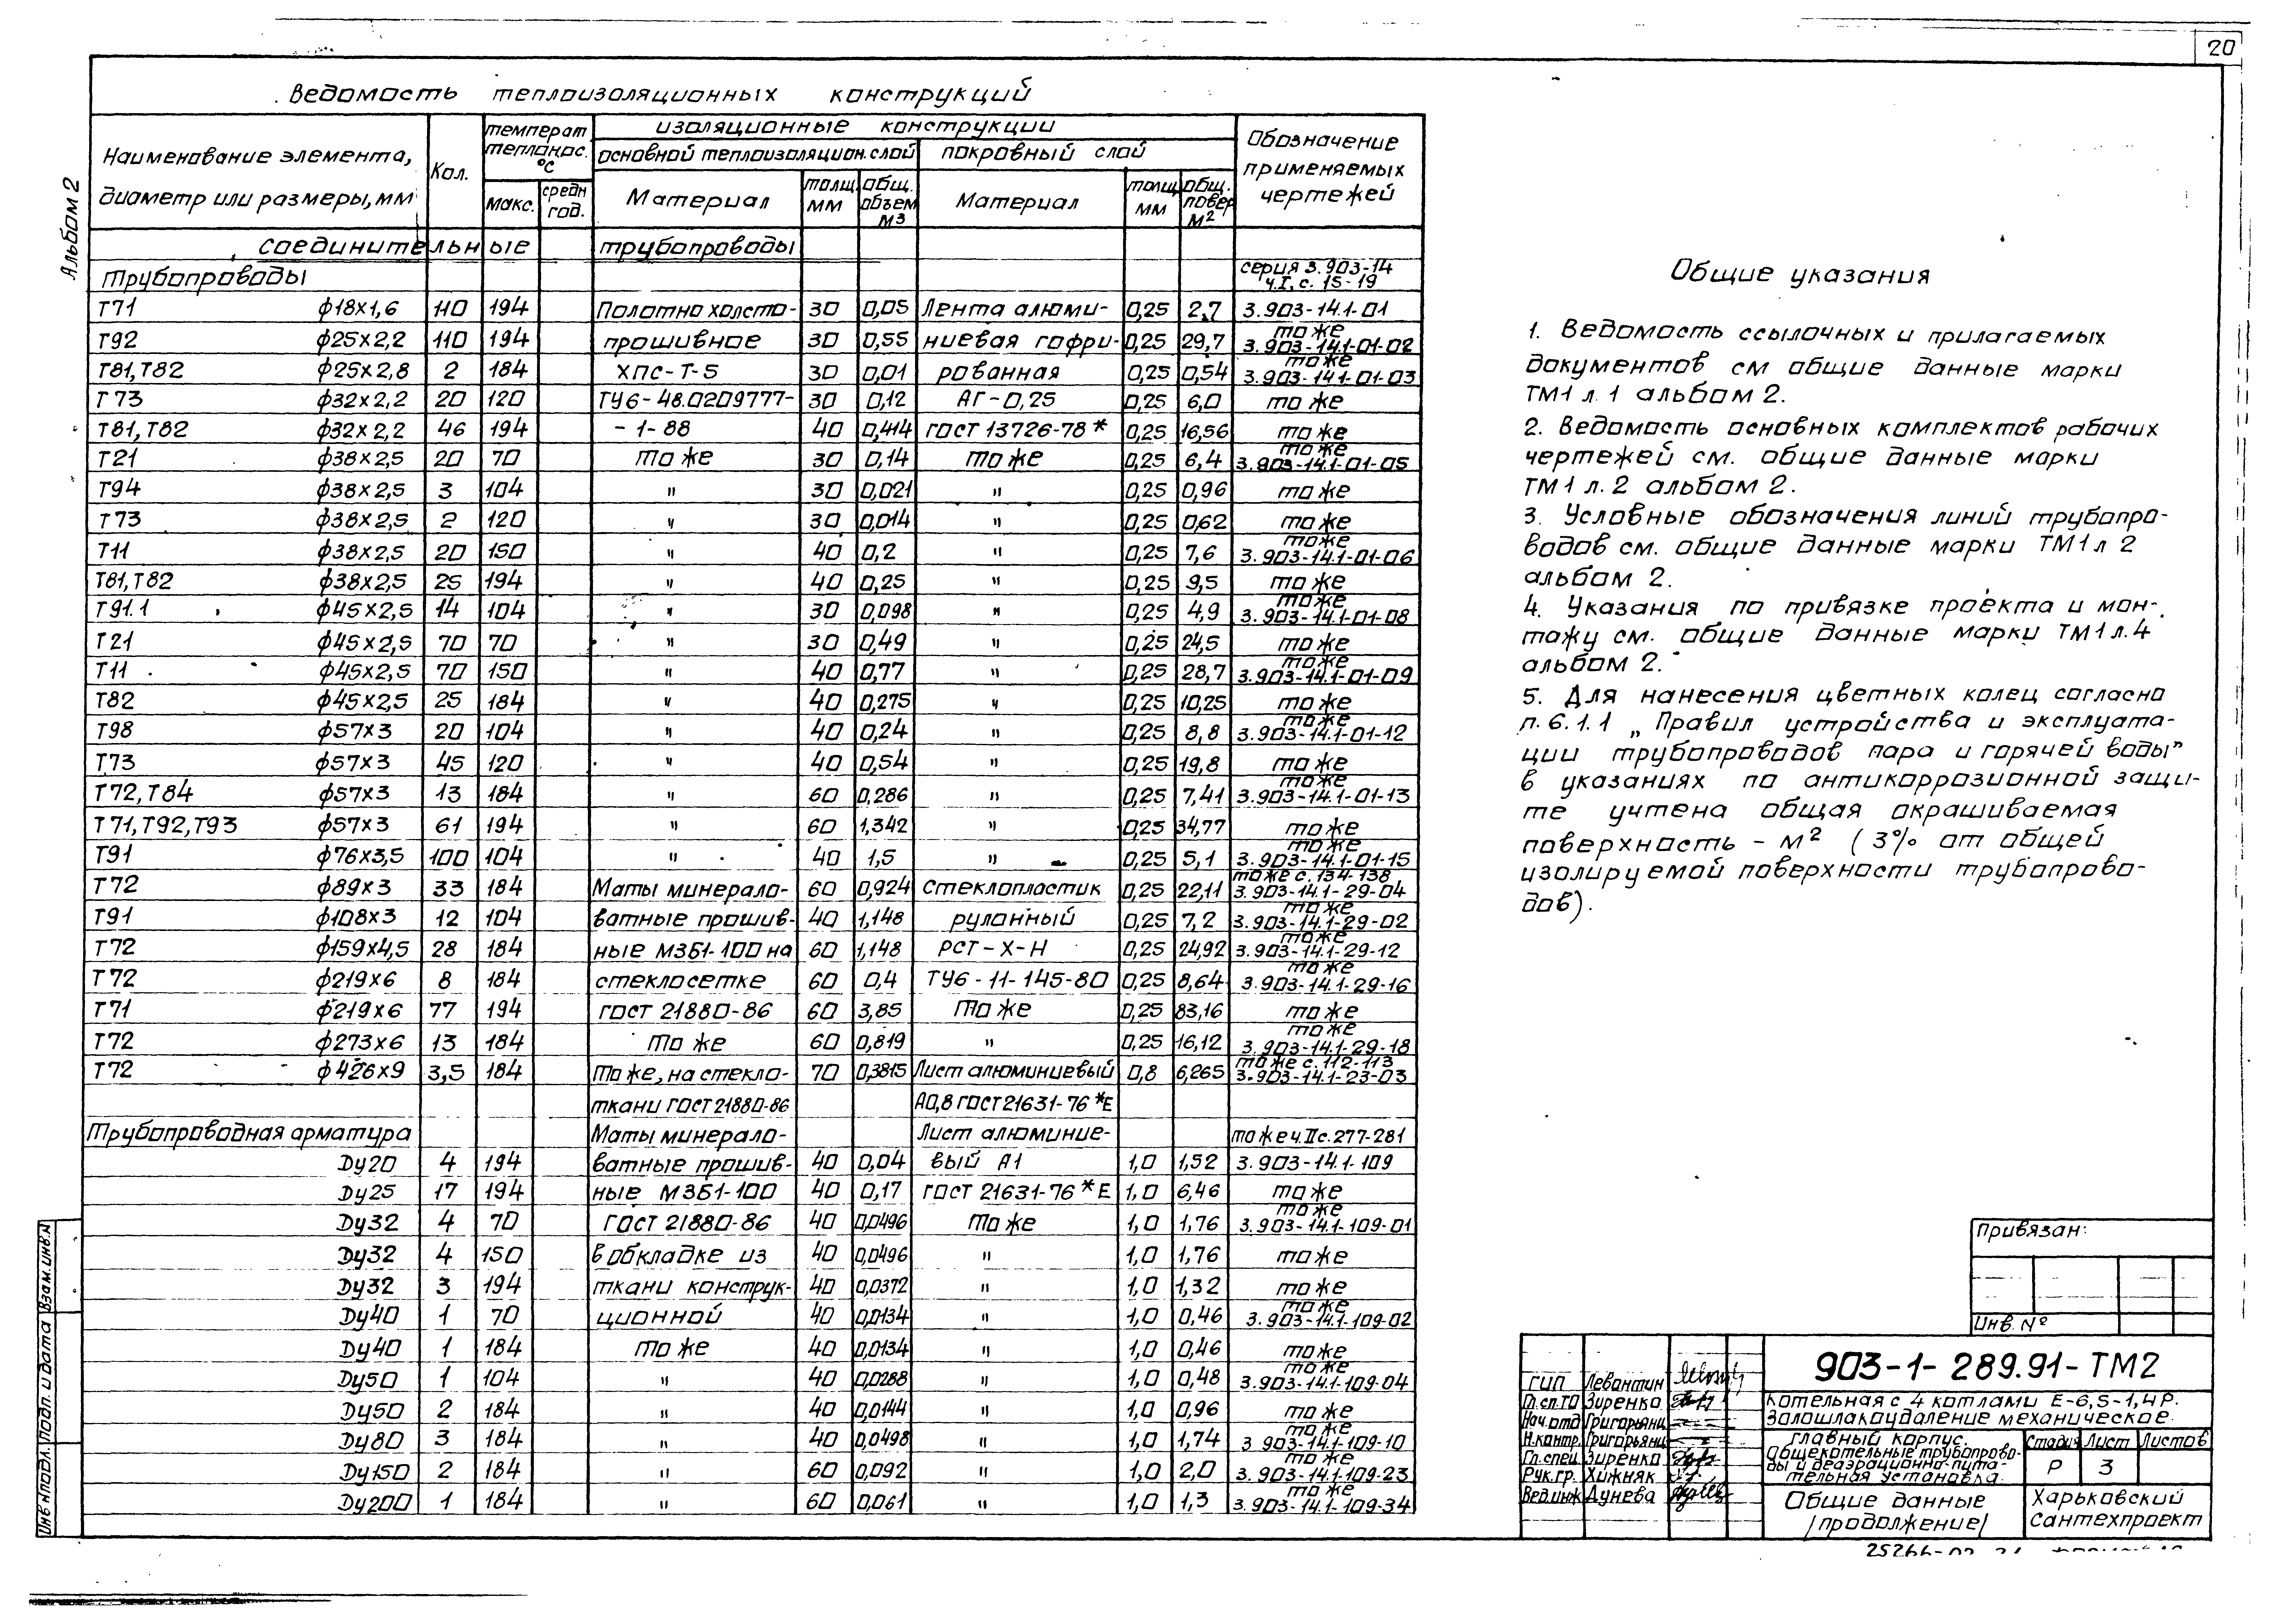 20
Альбом 2
Ведомость теплоизоляционных конструкций
Наименование элемента, диаметр или размеры, мм
Кол.
температ. теплонос. °С
макс.
средн год.
изоляционные конструкции
основной теплоизоляцион. слой
покровный слой
Материал
толщ мм
общ. объем м3
Материал
толщ мм
общ. повер м2
Обозначение применяемых чертежей
Соединительные трубопроводы
Трубопроводы серия 3.903-14 ч.I, с. 15-19
Т71 ф18х1,6 110 194 Полотно холсто- 30 0,05 Лента алюми- 0,25 2,7 3.903-14.1-01
Т92 ф25х2,2 110 194 прошивное 30 0,55 ниевая гофри- 0,25 29,7 то же 3.903-14.1-01-02
Т81,Т82 ф25х2,8 2 184 ХПС-Т-5 30 0,01 рованная 0,25 0,54 то же 3.903-14.1-01-03
Т73 ф32х2,2 20 120 ТУ6-48.0209777- 30 0,12 АГ-0,25 0,25 6,0 то же
Т81,Т82 ф32х2,2 46 194 -1-88 40 0,414 ГОСТ 13726-78* 0,25 16,56 то же
Т21 ф38х2,5 20 70 то же 30 0,14 то же 0,25 6,4 то же 3.903-14.1-01-05
Т94 ф38х2,5 3 104 " 30 0,021 " 0,25 0,96 то же
Т73 ф38х2,5 2 120 " 30 0,014 " 0,25 0,62 то же
Т11 ф38х2,5 20 150 " 40 0,2 " 0,25 7,6 то же 3.903-14.1-01-06
Т81,Т82 ф38х2,5 25 194 " 40 0,25 " 0,25 9,5 то же
Т91.1 ф45х2,5 14 104 " 30 0,098 " 0,25 4,9 то же 3.903-14.1-01-08
Т21 ф45х2,5 70 70 " 30 0,49 " 0,25 24,5 то же
Т11 ф45х2,5 70 150 " 40 0,77 " 0,25 28,7 то же 3.903-14.1-01-09
Т82 ф45х2,5 25 184 " 40 0,275 " 0,25 10,25 то же
Т98 ф57х3 20 104 " 40 0,24 " 0,25 8,8 то же 3.903-14.1-01-12
Т73 ф57х3 45 120 " 40 0,54 " 0,25 19,8 то же
Т72,Т84 ф57х3 13 184 " 60 0,286 " 0,25 7,41 то же 3.903-14.1-01-13
Т71,Т92,Т93 ф57х3 61 194 " 60 1,342 " 0,25 34,77 то же
Т91 ф76х3,5 100 104 " 40 1,5 " 0,25 5,1 то же 3.903-14.1-01-15
Т72 ф89х3 33 184 Маты минерало- 60 0,924 Стеклопластик 0,25 22,11 то же с. 134-138 3.903-14.1-29-04
Т91 ф108х3 12 104 ватные прошив- 40 1,148 рулонный 0,25 7,2 то же 3.903-14.1-29-02
Т72 ф159х4,5 28 184 ные МЗБ1-100 на 60 1,148 РСТ-Х-Н 0,25 24,92 то же 3.903-14.1-29-12
Т72 ф219х6 8 184 стеклосетке 60 0,4 ТУ6-11-145-80 0,25 8,64 то же 3.903-14.1-29-16
Т71 ф219х6 77 194 ГОСТ 21880-86 60 3,85 То же 0,25 83,16 то же
Т72 ф273х6 13 184 То же 60 0,819 " 0,25 16,12 то же 3.903-14.1-29-18
Т72 ф426х9 3,5 184 То же, на стекло- 70 0,3815 Лист алюминиевый 0,8 6,265 то же с. 112-113 3.903-14.1-23-03
ткани ГОСТ 21880-86 А0,8 ГОСТ 21631-76*Е
Трубопроводная арматура Маты минерало- Лист алюминие- то же ч.II с. 277-281
Ду20 4 194 ватные прошив- 40 0,04 вый А1 1,0 1,52 3.903-14.1-109
Ду25 17 194 ные МЗБ1-100 40 0,17 ГОСТ 21631-76*Е 1,0 6,46 то же
Ду32 4 70 ГОСТ 21880-86 40 0,0496 То же 1,0 1,76 то же 3.903-14.1-109-01
Ду32 4 150 в обкладке из 40 0,0496 " 1,0 1,76 то же
Ду32 3 194 ткани конструк- 40 0,0372 " 1,0 1,32 то же
Ду40 1 70 ционной 40 0,0134 " 1,0 0,46 то же 3.903-14.1-109-02
Ду40 1 184 то же 40 0,0134 " 1,0 0,46 то же
Ду50 1 104 " 40 0,0288 " 1,0 0,48 то же 3.903-14.1-109-04
Ду50 2 184 " 40 0,0144 " 1,0 0,96 то же
Ду80 3 184 " 40 0,0498 " 1,0 1,74 то же 3.903-14.1-109-10
Ду150 2 184 " 60 0,092 " 1,0 2,0 то же 3.903-14.1-109-23
Ду200 1 184 " 60 0,061 " 1,0 1,3 то же 3.903-14.1-109-34
Общие указания
1. Ведомость ссылочных и прилагаемых
документов см общие данные марки
ТМ1 л.1 альбом 2.
2. Ведомость основных комплектов рабочих
чертежей см. общие данные марки
ТМ1 л.2 альбом 2.
3. Условные обозначения линий трубопро-
водов см. общие данные марки ТМ1 л 2
альбом 2.
4. Указания по привязке проекта и мон-
тажу см. общие данные марки ТМ1 л.4
альбом 2.
5. Для нанесения цветных колец согласно
п.6.1.1 „Правил устройства и эксплуата-
ции трубопроводов пара и горячей воды"
в указаниях по антикоррозионной защи-
те учтена общая окрашиваемая
поверхность - м2 (3% от общей
изолируемой поверхности трубопрово-
дов).
Привязан:
Инв. №
903-1-289.91-ТМ2
Котельная с 4 котлами Е-6,5-1,4Р.
Золошлакоудаление механическое.
Главный корпус.
Общекотельные трубопрово-
ды и деаэрационно-пита-
тельная установка.
Стадия Лист Листов
Р 3
Общие данные
/продолжение/
Харьковский
Сантехпроект
ГИП Левантин
Гл.сп.ТО Зиренко
Нач.отд Григорьянц
Н.контр. Григорьянц
Гл.спец Зиренко
Рук.гр. Хижняк
Вед.инж Дунева
Инв № подл. Подп. и дата Взам. инв. №